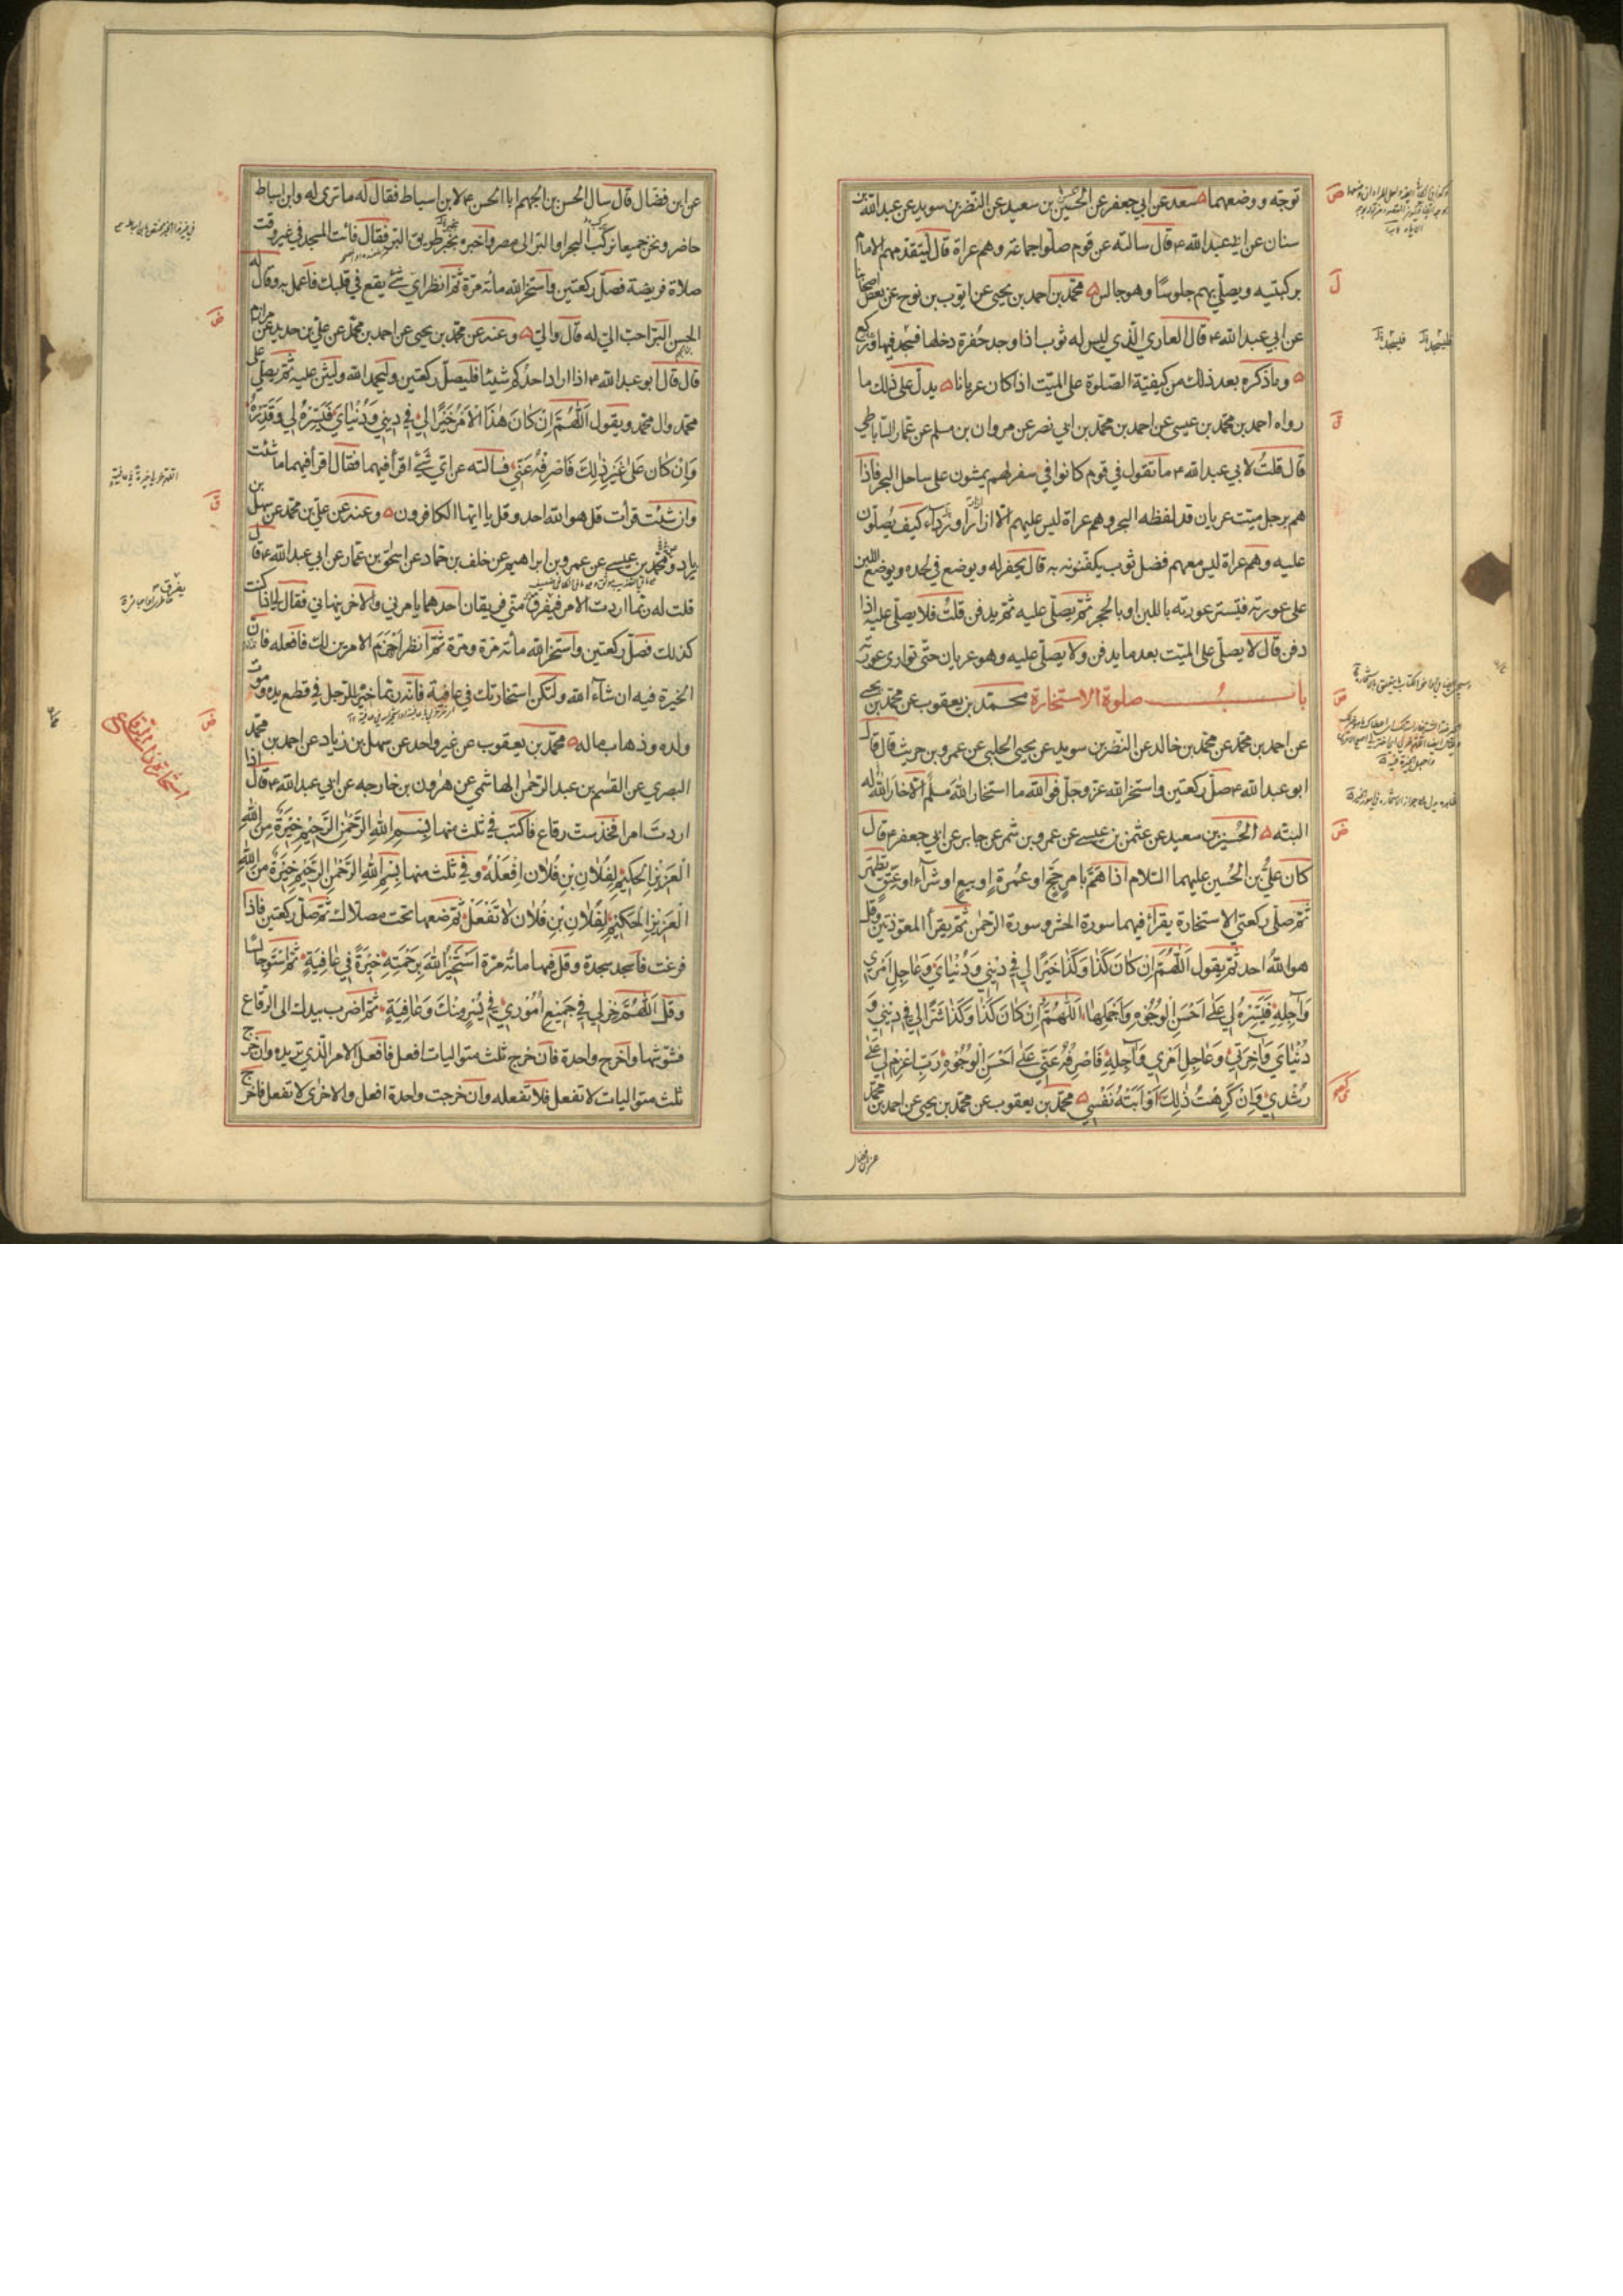 توجه ووضعهما سعد عن ابي جعفر عن الحسين بن سعيد عن النضر بن سويد عن عبد الله بن
سنان عن ابي عبد الله ع قال سالته عن قوم صلوا جماعة وهم عراة قال يتقدمهم الامام
بركبتيه ويصلي بهم جلوسا وهو جالس محمد بن احمد بن يحيى عن ايوب بن نوح عن بعض اصحابنا
عن ابي عبد الله ع قال العاري الذي ليس له ثوب اذا وجد حفرة دخلها فيسجد فيها وركع
وما ذكره بعد ذلك من كيفية الصلوة على الميت اذا كان عريانا يدل على ذلك ما
رواه احمد بن محمد بن عيسى عن احمد بن محمد بن ابي نصر عن مروان بن مسلم عن عمار الساباطي
قال قلتُ لابي عبد الله ع ما تقول في قوم كانوا في سفر لهم يمشون على ساحل البحر فاذا
هم برجل ميت عريان قد لفظه البحر وهم عراة ليس عليهم الا ازار ورداء كيف يُصلون
عليه وهم عراة ليس معهم فضل ثوب يكفنونه به قال يحفر له ويوضع في لحده ويوضع اللبن
على عورته فيستر عورته باللبن او بالحجر ثم يصلى عليه ثم يدفن قلتُ فلا يصلى عليه اذا
دفن قال لا يصلى على الميت بعد ما يدفن ولا يصلى عليه وهو عريان حتى توارى عورته
بابُ صلوة الاستخارة محمد بن يعقوب عن محمد بن يحيى
عن احمد بن محمد عن محمد بن خالد عن النضر بن سويد عن يحيى الحلبي عن عمرو بن حريث قال قال
ابو عبد الله ع صل ركعتين واستخر الله عز وجل فوالله ما استخار الله مسلم الا خار الله له
البته الحسين بن سعيد عن عثمن بن عيسى عن عمرو بن شمر عن جابر عن ابي جعفر ع قال
كان علىُّ بن الحُسين عليهما السلام اذا همَّ بامر حج او عُمرة او بيع او شرآء او عتق تطهر
ثم صلى ركعتي الاستخارة يقرأ فيهما سورة الحشر وسورة الرحمن ثم يقرأ المعوذتين وقل
هو اللهُ احد ثم يقول اَللّهُمَّ اِنْ كانَ كَذا وَكَذا خَيْرًا لي في ديني وَدُنْيايَ وَعاجِلِ اَمْري
وَآجِلِهِ فَيَسِّرْهُ لي عَلى اَحْسَنِ الْوُجُوهِ وَاَجْمَلِها اَللّهُمَّ اِنْ كانَ كَذا وَكَذا شَرًّا لي في ديني وَ
دُنْيايَ وَآخِرَتي وَعاجِلِ اَمْري وَآجِلِهِ فَاصْرِفْهُ عَنّي عَلى اَحْسَنِ الْوُجُوهِ رَبِّ اعْزِمْ لي عَلى
رُشْدي وَاِنْ كَرِهْتُ ذلِكَ اَوْ اَبَتْهُ نَفْسي محمد بن يعقوب عن محمد بن يحيى عن احمد بن محمد
عن ابن فضال
عن ابن فضال قال سال الحسن بن الجهم ابا الحسن ع لابن اسباط فقال له ما ترى له وابن اسباط
حاضر ونحن جميعا نركب البحر او البر الى مصر واخبره بخير طريق البر فقال فأت المسجد في غير وقت
صلاة فريضة فصل ركعتين واستخر الله مائة مرة ثم انظر اي شئ يقع في قلبك فاعمل به وقال له
الحسن البر احب الي له قال والي وعنه عن محمد بن يحيى عن احمد بن محمد عن علي بن حديد عن مرازم
قال قال ابو عبد الله ع اذا اراد احدكم شيئا فليصل ركعتين وليحمد الله وليثن عليه ثم يصلي على
محمد وال محمد ويقول اَللّهُمَّ اِنْ كانَ هذَا الْاَمْرُ خَيْرًا لي في ديني وَدُنْيايَ فَيَسِّرْهُ لي وَقَدِّرْهُ
وَاِنْ كانَ عَلى غَيْرِ ذلِكَ فَاصْرِفْهُ عَنّي فسالته عن اي شئ اقرأ فيهما فقال اقرأ فيهما ما شئت
وان شئت قرأت قل هو الله احد وقل يا ايها الكافرون وعنه عن علي بن محمد عن سهل بن
زياد ومحمد بن عيسى عن عمرو بن ابراهيم عن خلف بن حماد عن اسحق بن عمار عن ابي عبد الله ع قال
قلت له ربما اردت الامر فيفرق متى فريقان احدهما يامرني والاخر ينهاني فقال لي اذا كنت
كذلك فصل ركعتين واستخر الله مائة مرة ومرة ثم انظر احزم الامرين لك فافعله فان
الخيرة فيه ان شآء الله ولتكن استخارتك في عافية فانه ربما خير للرجل في قطع يده وموت
ولده وذهاب ماله محمد بن يعقوب عن غير واحد عن سهل بن زياد عن احمد بن محمد
البصري عن القسم بن عبد الرحمن الهاشمي عن هرون بن خارجه عن ابي عبد الله ع قال اذا
اردتَ امرا فخذ ست رقاع فاكتب في ثلث منها بِسْمِ اللهِ الرَّحْمنِ الرَّحيمِ خِيَرَةٌ مِنَ اللهِ
الْعَزيزِ الْحَكيمِ لِفُلانِ بْنِ فُلان اِفْعَلْهُ وفي ثلث منها بِسْمِ اللهِ الرَّحْمنِ الرَّحيمِ خِيَرَةٌ مِنَ اللهِ
الْعَزيزِ الْحَكيمِ لِفُلانِ بْنِ فُلان لا تَفْعَلْ ثم ضعها تحت مصلاك ثم صل ركعتين فاذا
فرغت فاسجد سجدة وقل فيها مائة مرة اَسْتَخيرُ اللهَ بِرَحْمَتِهِ خِيَرَةً في عافِيَةٍ ثم استو جالسا
وقل اَللّهُمَّ خِرْ لي في جَميعِ اُمُوري في يُسْرٍ مِنْكَ وَعافِيَةٍ ثم اضرب بيدك الى الرقاع
فشوشها واخرج واحدة فان خرج ثلث متواليات افعل فافعل الامر الذي تريده وان خرج
ثلث متواليات لا تفعل فلا تفعله وان خرجت واحدة افعل والاخرى لا تفعل فاخرج
استخارة ذات الرقاع